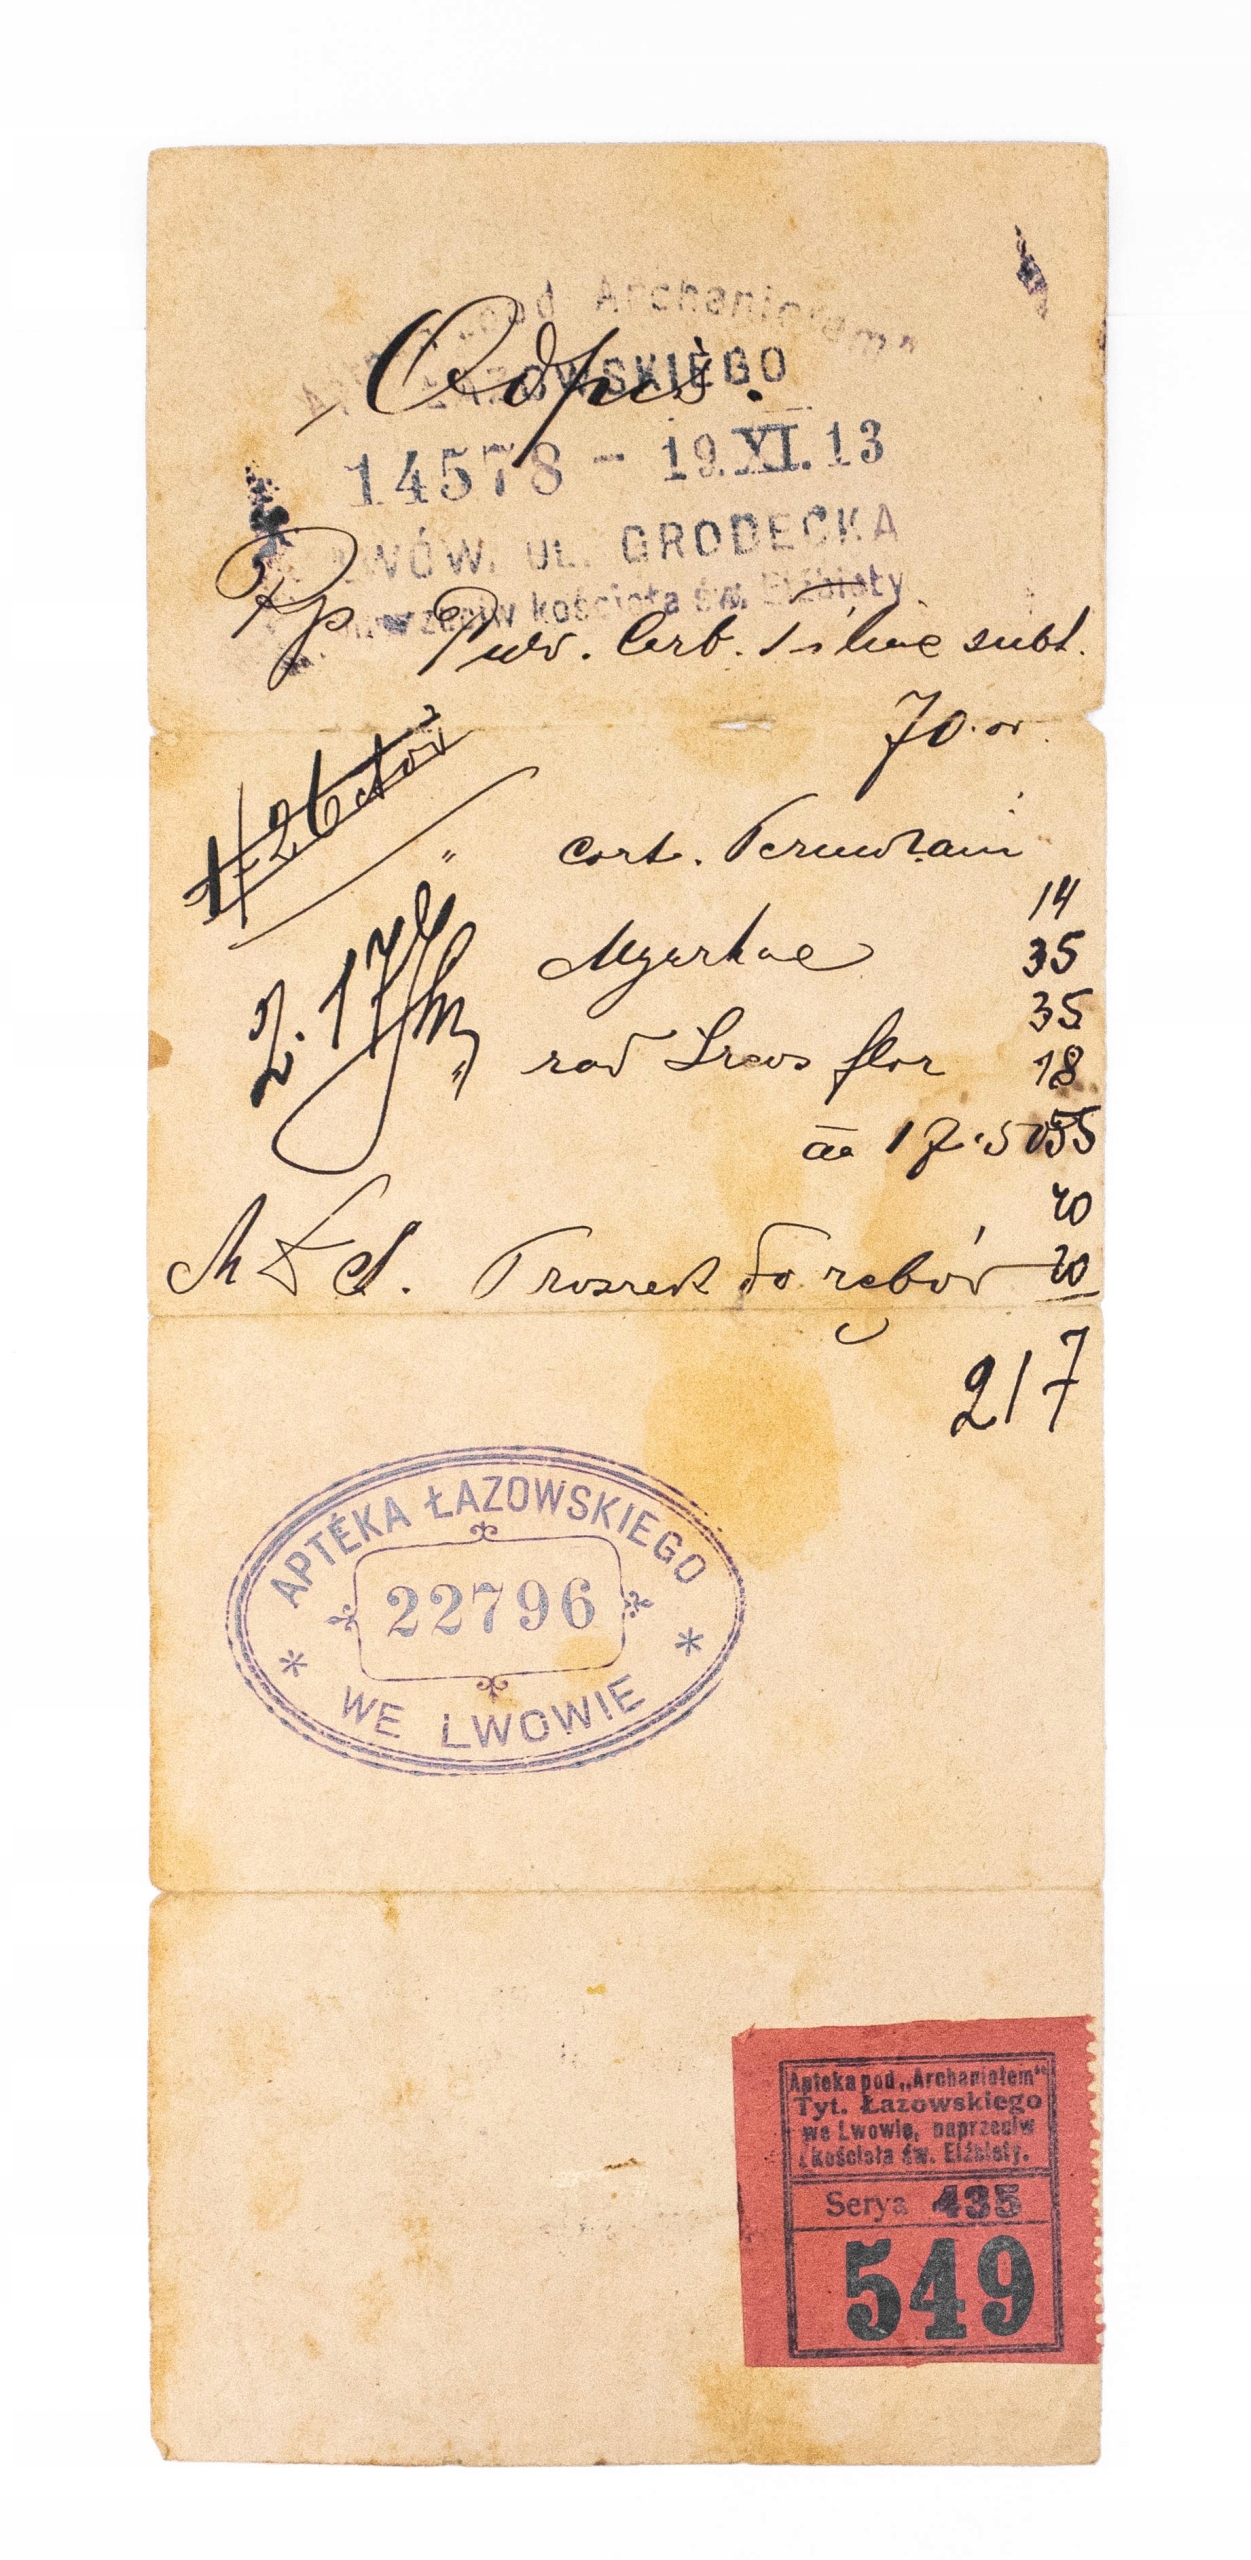 Apteka pod „Archaniołem"
Odpis.
ŁAZOWSKIEGO
14578 - 19.XI.13
LWÓW, UL. GRODECKA
naprzeciw kościoła św. Elżbiety
Rp Pulv. Carb. Tiliae subt.
70.0
" cort. Peruviani
14
" Myrrhae 35
35
" rad Ireos flor 18
2.17
āā 17.50 55
40
M f d. Proszek do zębów 20
217
APTEKA ŁAZOWSKIEGO
22796
WE LWOWIE
Apteka pod „Archaniołem"
Tyt. Łazowskiego
we Lwowie, naprzeciw
kościoła św. Elżbiety.
Serya 435
549